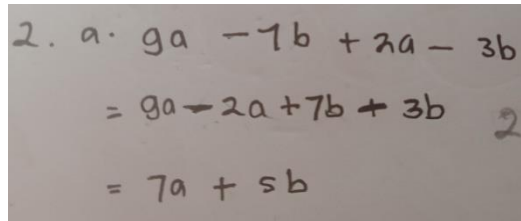 2. a. 9a - 7b + 2a - 3b
= 9a - 2a + 7b + 3b 2
= 7a + 5b